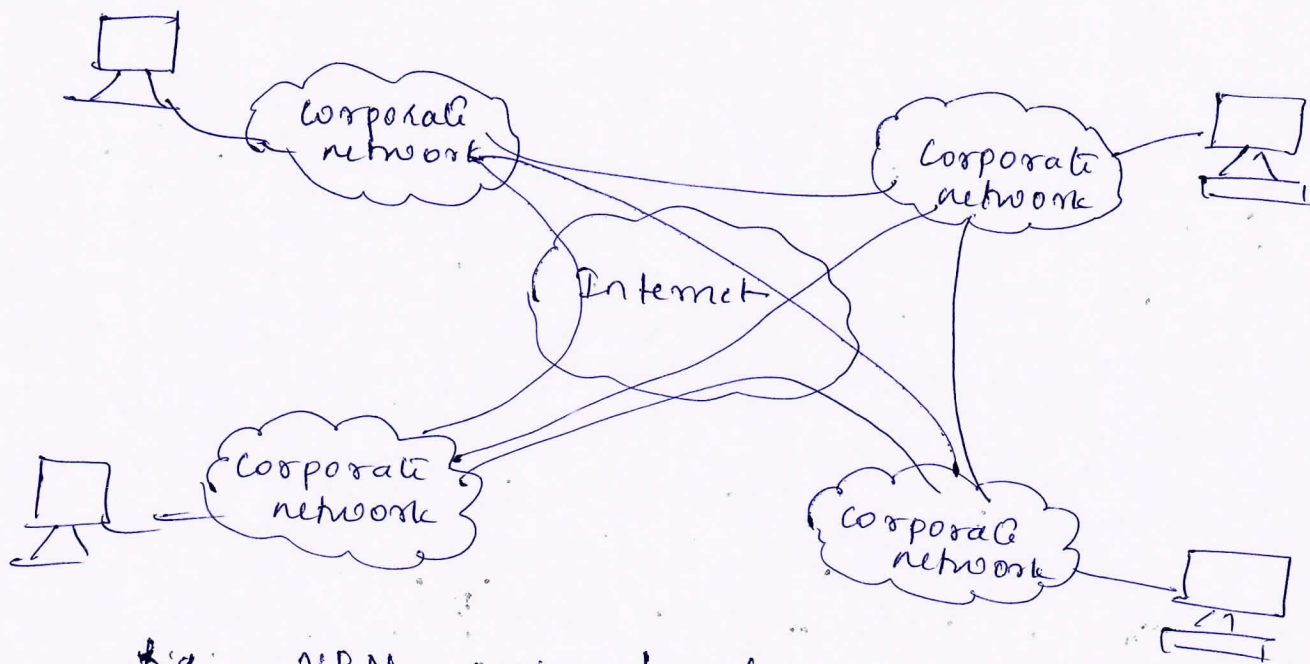 Corporate
network
Corporate
network
Internet
Corporate
network
Corporate
network